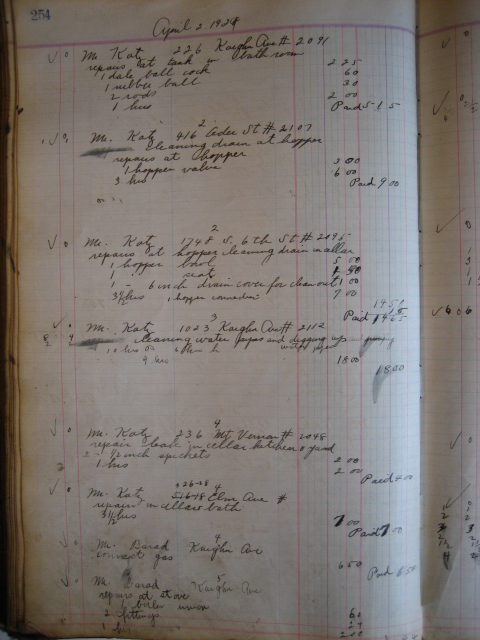 254
April 2, 1929
Mr. Katz 226 Kaighn Ave # 2091
repairs at tank in bath room 2 25
1 dale ball cock 60
1 rubber ball 30
2 rods 2 00
1 hrs Paid 5 15
2
Mr. Katz 416 Cedar St # 2107
cleaning drain at hopper
repairs at hopper
1 hopper valve 3 00
3 hrs 6 00
Paid 9 00
2
Mr. Katz 1748 S. 6th St # 2095
repairs at hopper cleaning drain in cellar
1 hopper bowl 5 00
1 " seat
1 - 6 inch drain cover for clean out 1 00
3 1/2 hrs 1 hopper connection 7 00
14 51
Paid
3
Mr. Katz 1023 Kaighn Ave # 2112
cleaning water pipes and digging up
9 hrs 18 00
18 00
4
Mr. Katz 236 Mt. Vernon # 2048
repair leak in cellar kitchen & yard
2 - 1/2 inch spickets 2 00
1 hrs 2 00
Paid 4 00
4
Mr. Katz Elm Ave #
repairs in cellar bath
3 1/2 hrs 7 00
Paid 7 00
4
Mr. Barad Kaighn Ave
connect gas 6 50
Paid 6 50
5
Mr. Barad Kaighn Ave
repairs at stove
boiler union 60
2 fittings
1 hrs 2 00